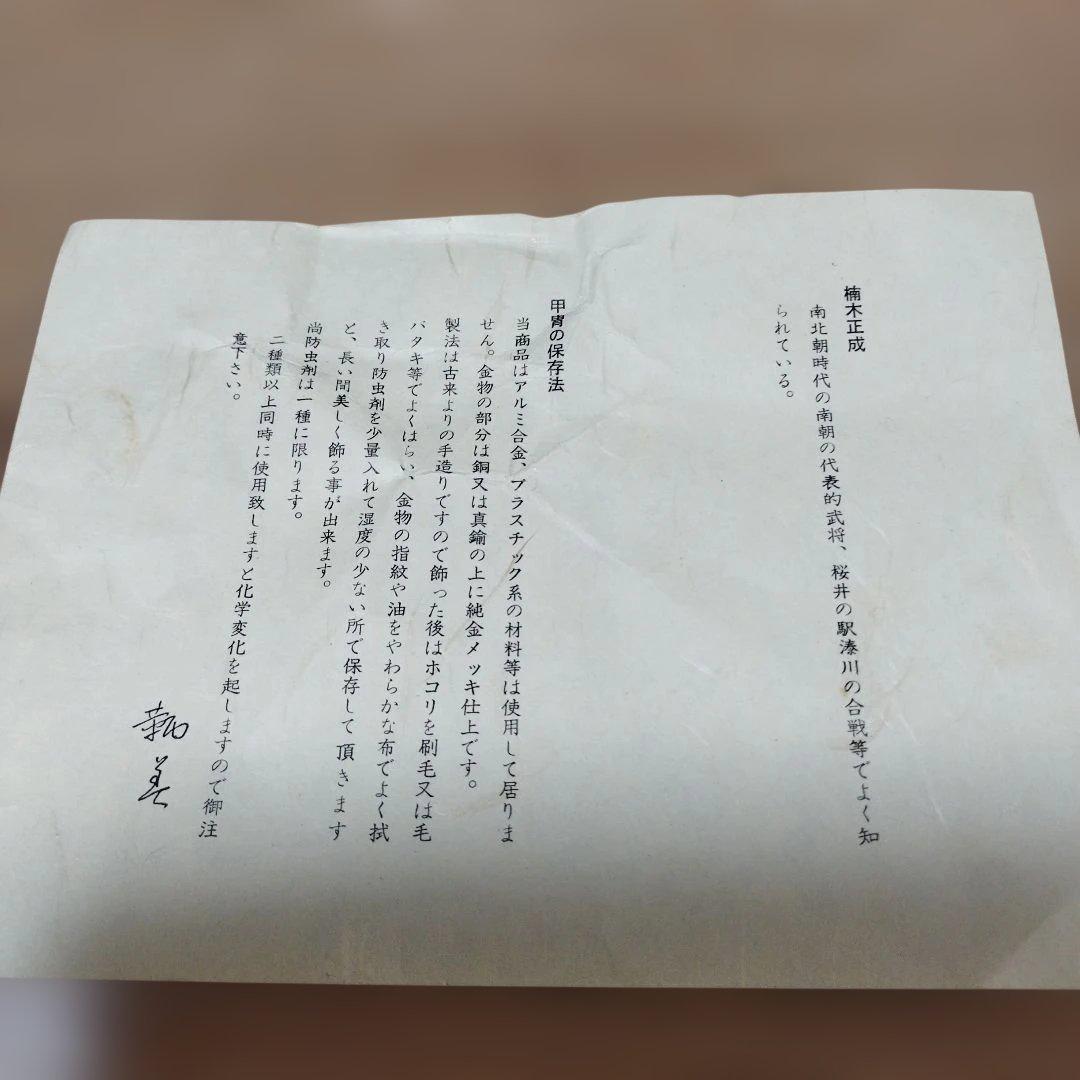 楠木正成
南北朝時代の南朝の代表的武将、桜井の駅湊川の合戦等でよく知
られている。
甲冑の保存法
当商品はアルミ合金、プラスチック系の材料等は使用して居りま
せん。金物の部分は銅又は真鍮の上に純金メッキ仕上です。
製法は古来よりの手造りですので飾った後はホコリを刷毛又は毛
バタキ等でよくはらい、金物の指紋や油をやわらかな布でよく拭
き取り防虫剤を少量入れて湿度の少ない所で保存して頂きます
と、長い間美しく飾る事が出来ます。
尚防虫剤は一種に限ります。
二種類以上同時に使用致しますと化学変化を起しますので御注
意下さい。